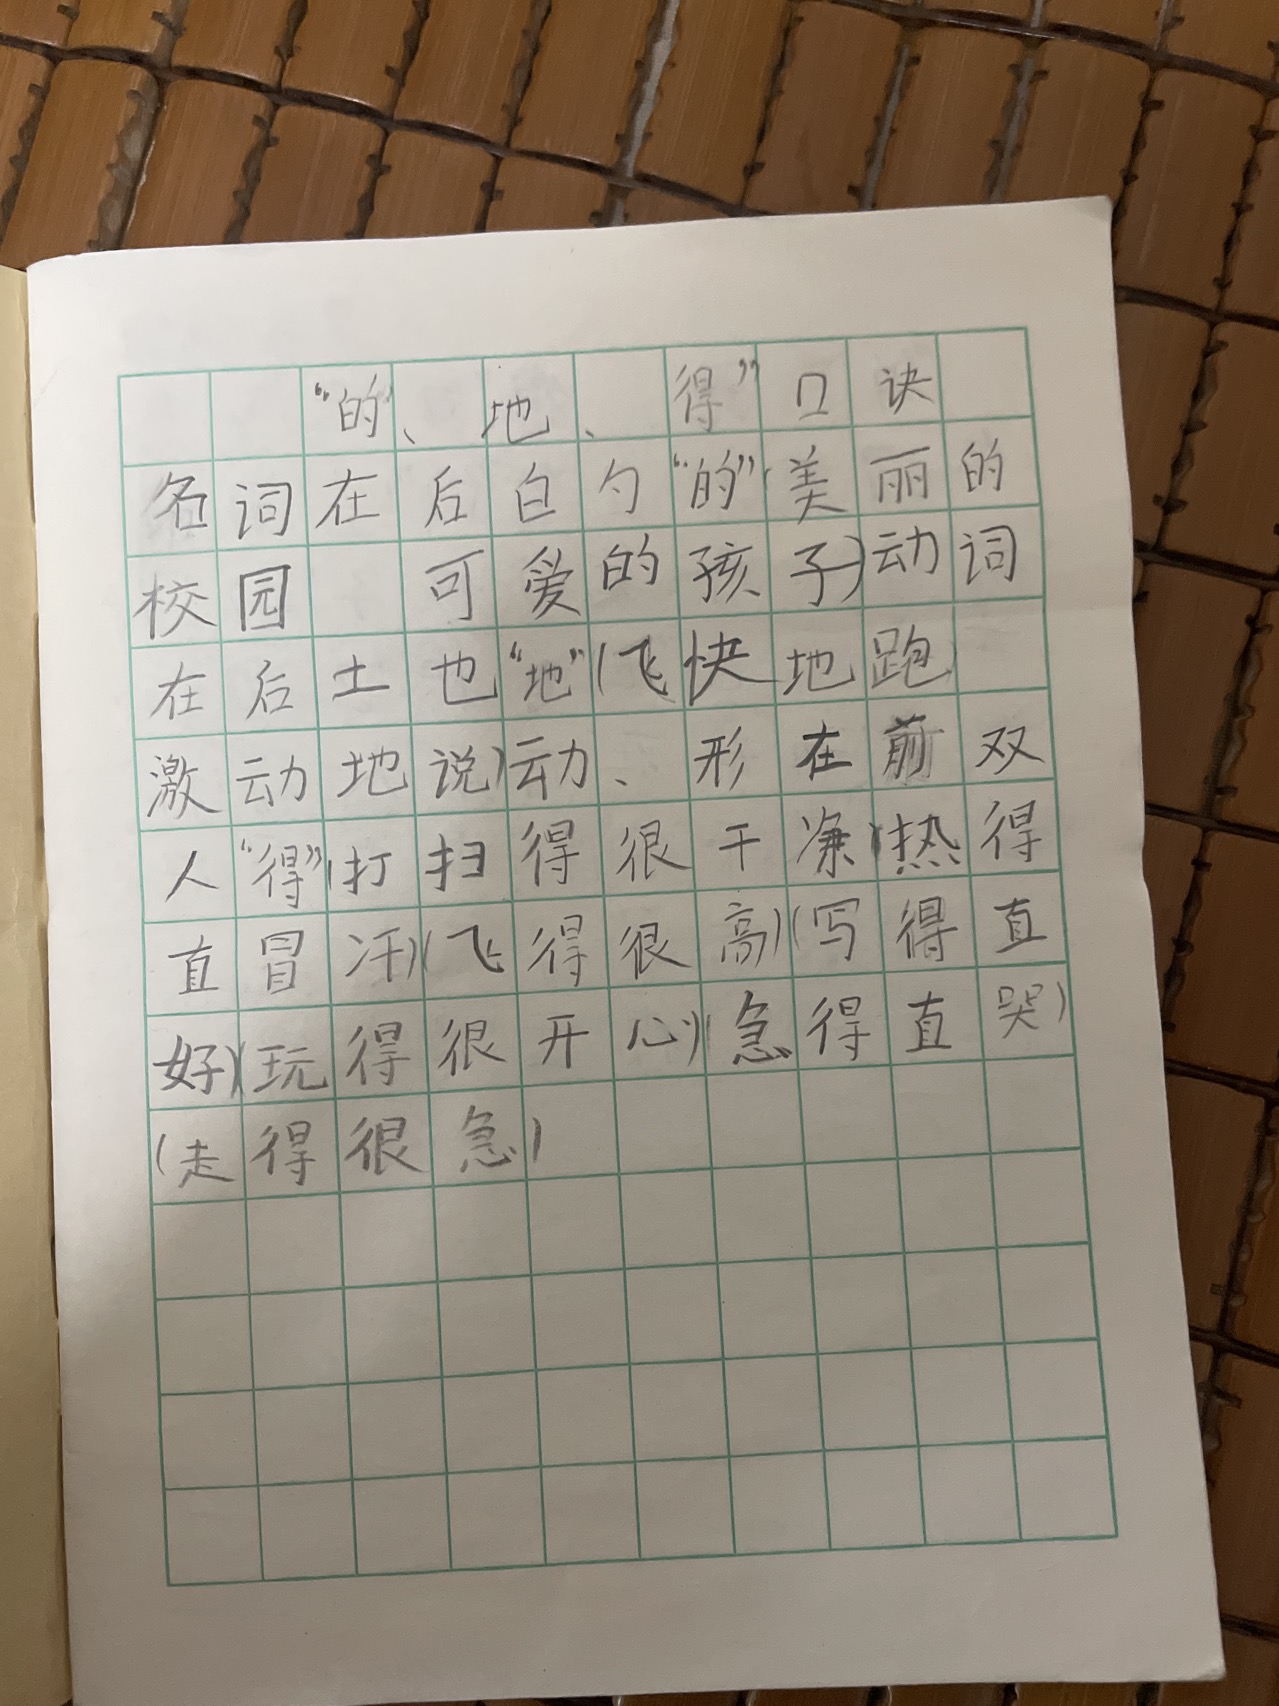 “的、地、得”口诀
名词在后白勺“的”(美丽的
校园 可爱的孩子)动词
在后土也“地”(飞快地跑
激动地说)动、形在前双
人“得”(打扫得很干净)(热得
直冒汗)(飞得很高)(写得直
好)(玩得很开心)(急得直哭)
(走得很急)